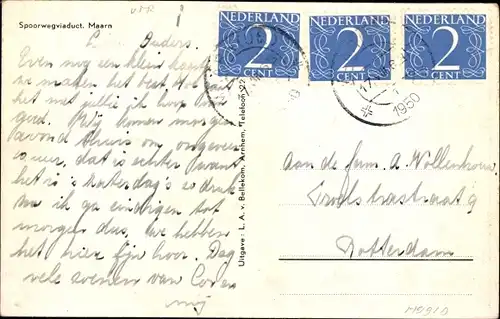 Spoorwegviaduct. Maarn
NEDERLAND 2 CENT
NEDERLAND 2 CENT
NEDERLAND 2 CENT
1950
L. Ouders.
Even nog een klein kaartje
te maken het best. Hoe gaat
het met jullie ik hoop
goed. Wij komen morgen
avond thuis om ongeveer
uur, dat is echter want
het is zaterdag's zo druk
nu ik ga eindigen tot
morgen dus, we hebben
het hier fijn hoor. Dag
vele zoenen van
mij
Uitgave: L. A. v. Bellekom, Arnhem, Telefoon 22
Aan de fam. A. Wollenhoven
Troelstrastraat 9
Rotterdam